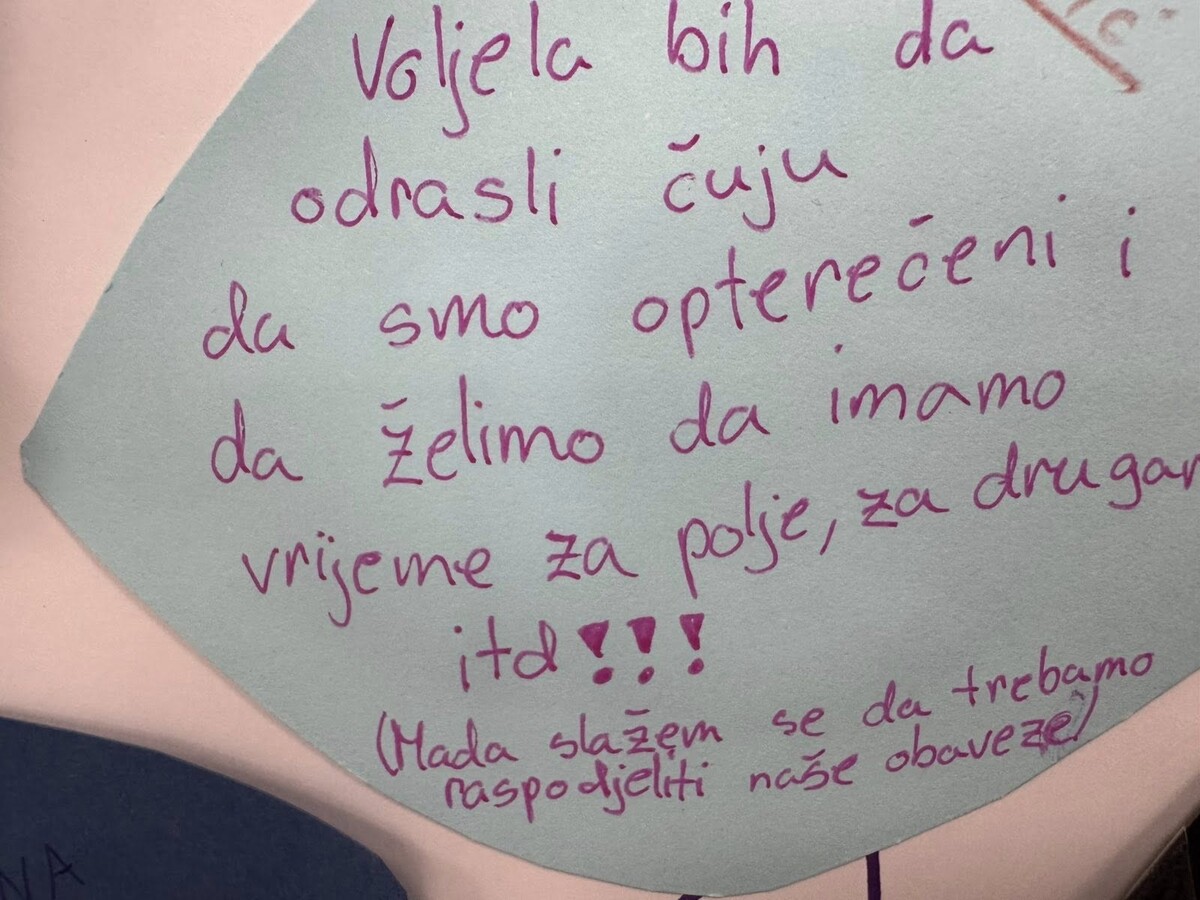 Voljela bih da
odrasli čuju
da smo opterečeni i
da želimo da imamo
vrijeme za polje, za drugar
itd!!!
(Mada slažem se da trebamo
raspodjeliti naše obaveze)
NA